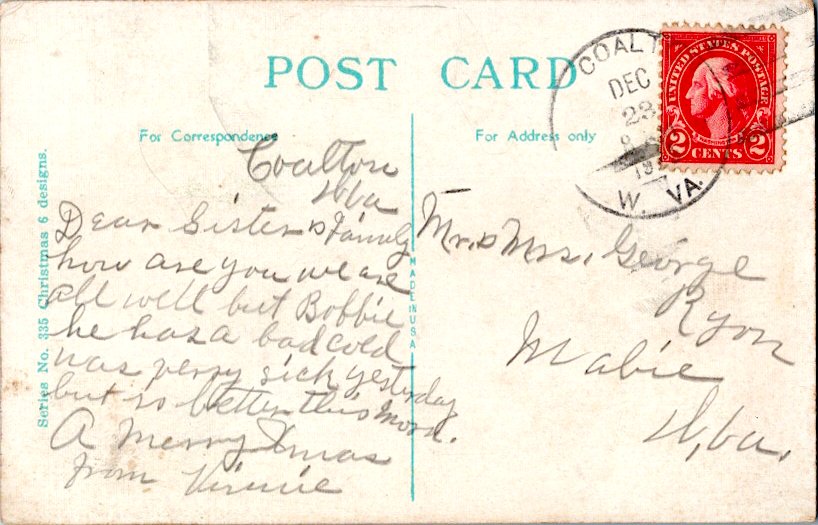 POST CARD
For Correspondence
For Address only
COALT
DEC
23
19
W. VA.
UNITED STATES POSTAGE
WASHINGTON
2 CENTS 2
Series No. 335 Christmas 6 designs.
MADE IN U.S.A
Coalton
W Va
Dear Sister & Family
how are you we are
all well but Bobbie
he has a bad cold
was verry sick yesterday
but is better this morn.
A Merry Xmas
from Virnie
Mr. & Mrs. George
Ryon
Mabie
W, Va.